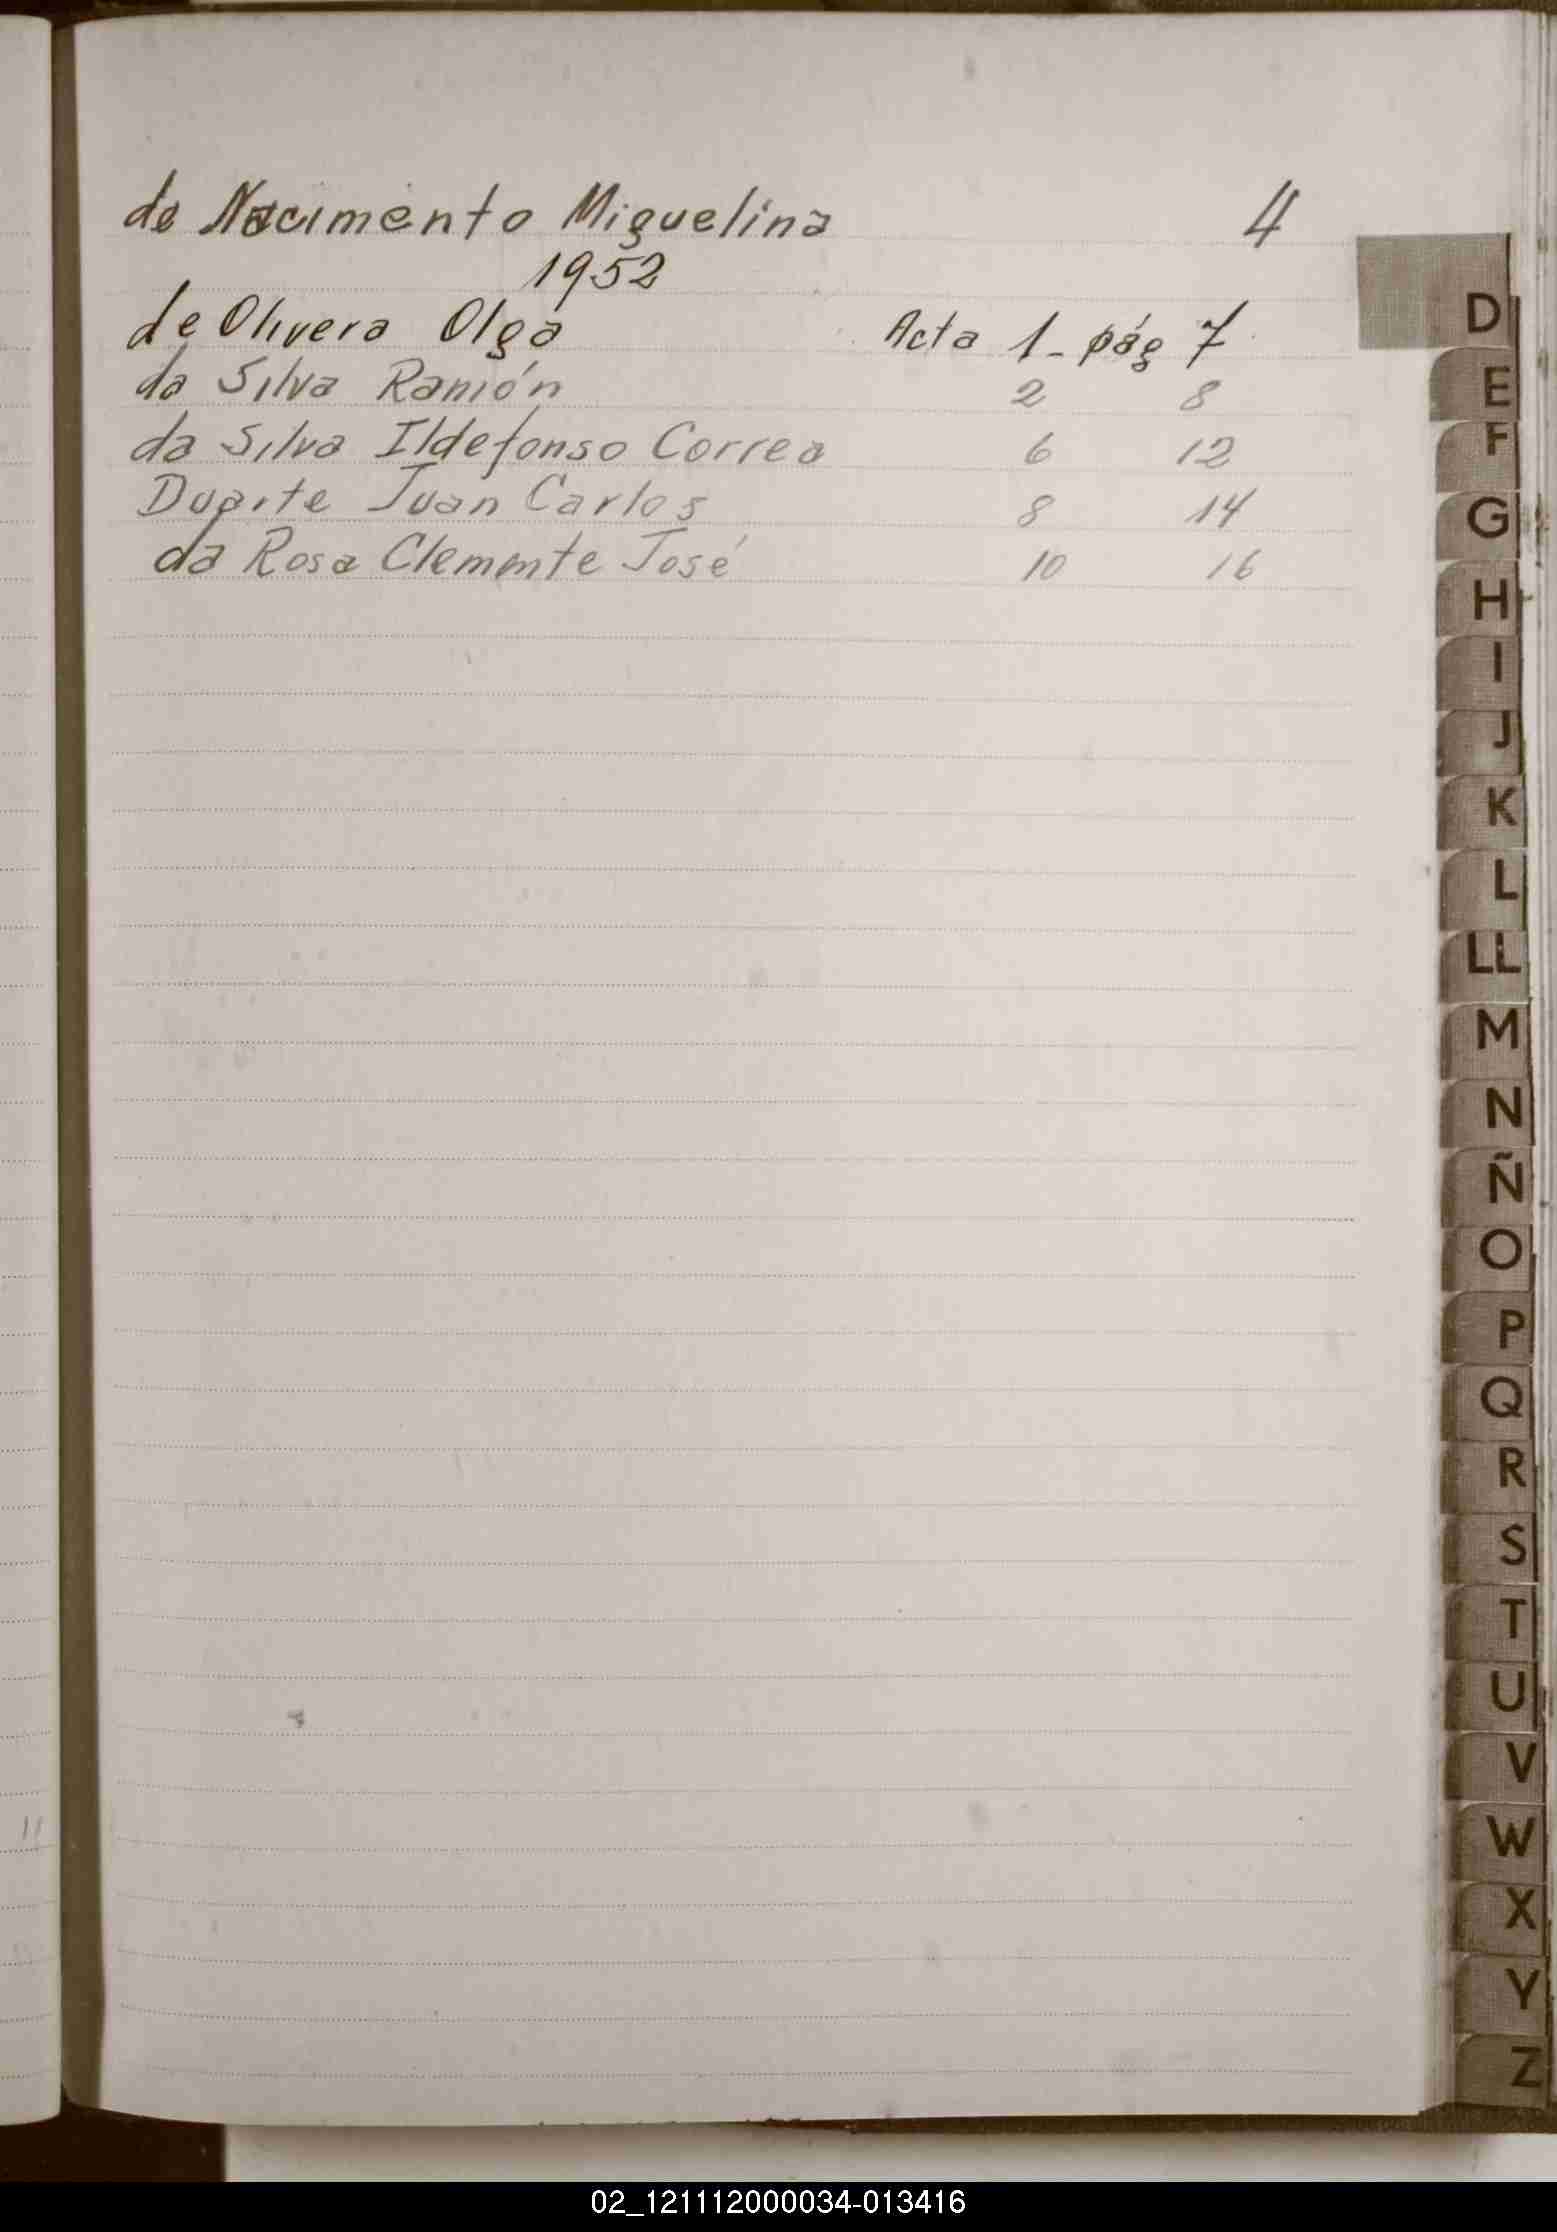 de Nacimento Miguelina 4
1952
de Olivera Olga Acta 1- pág 7
da Silva Ramón 2 8
da Silva Ildefonso Correa 6 12
Duarte Juan Carlos 8 14
da Rosa Clemente José 10 16
D
E
F
G
H
I
J
K
L
LL
M
N
Ñ
O
P
Q
R
S
T
U
V
W
X
Y
Z
11
02_121112000034-013416